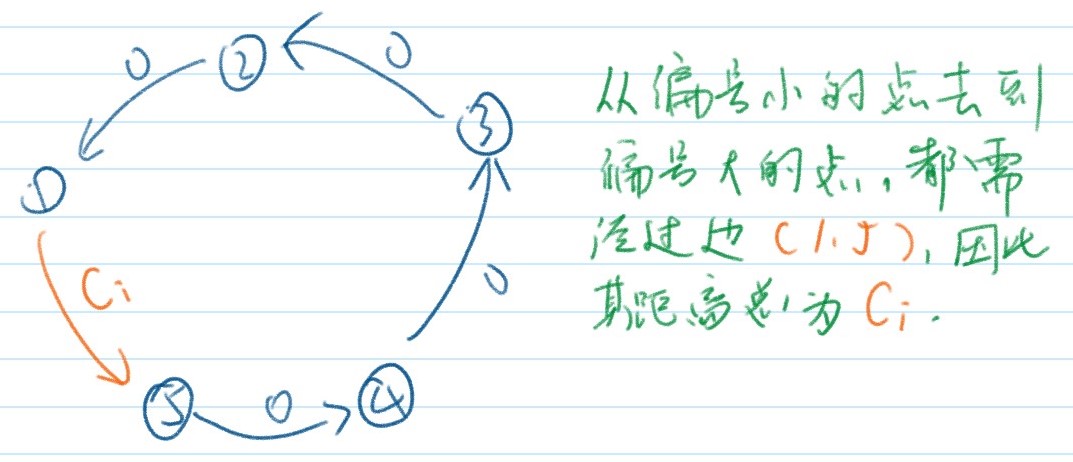 0
②
0
③
①
Cᵢ
0
⑤
0
④
从偏号小的点去到
偏号大的点，都需
经过边 (1,5)，因此
其距离总为 Cᵢ.